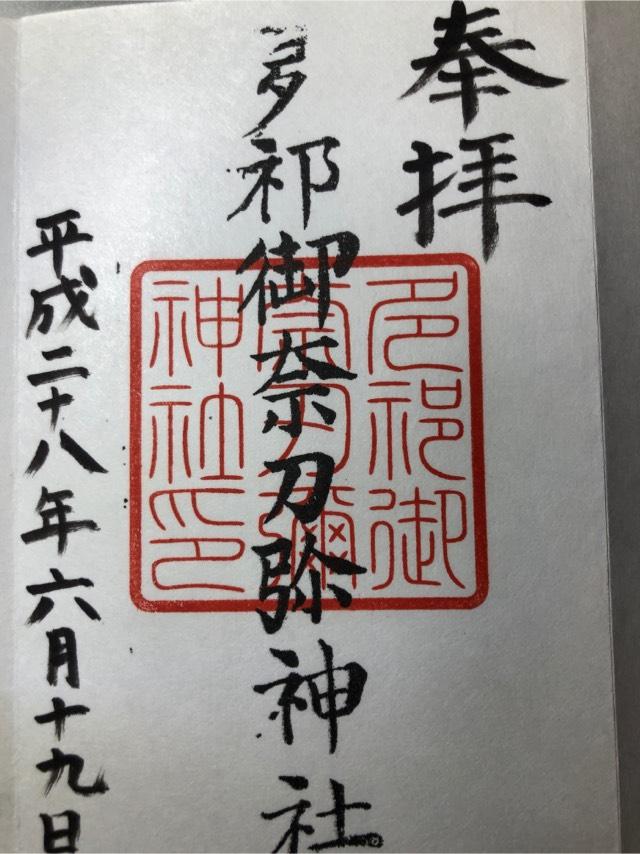 奉拝
多祁御奈刀弥神社
多祁御
奈刀彌
神社印
平成二十八年六月十九日